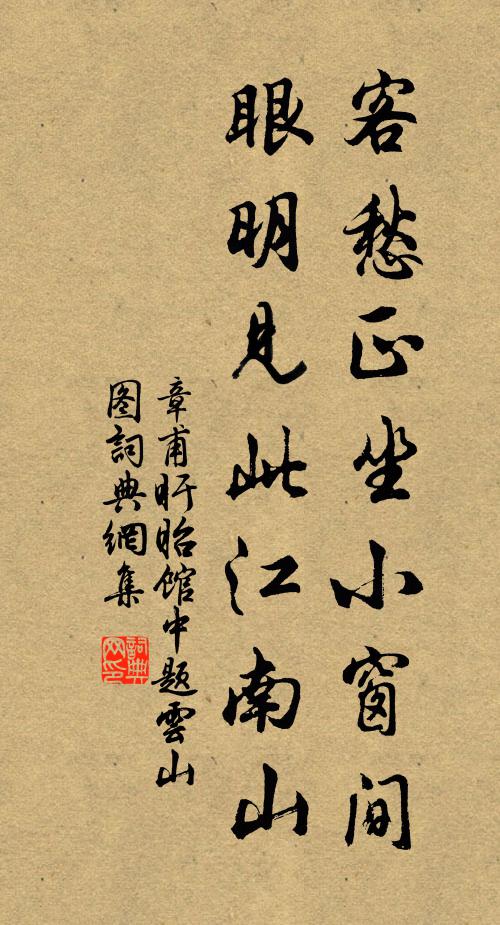 客愁正坐小窗间
眼明见此江南山
章甫盱眙馆中题雲山
图詞典網集
詞典
网印